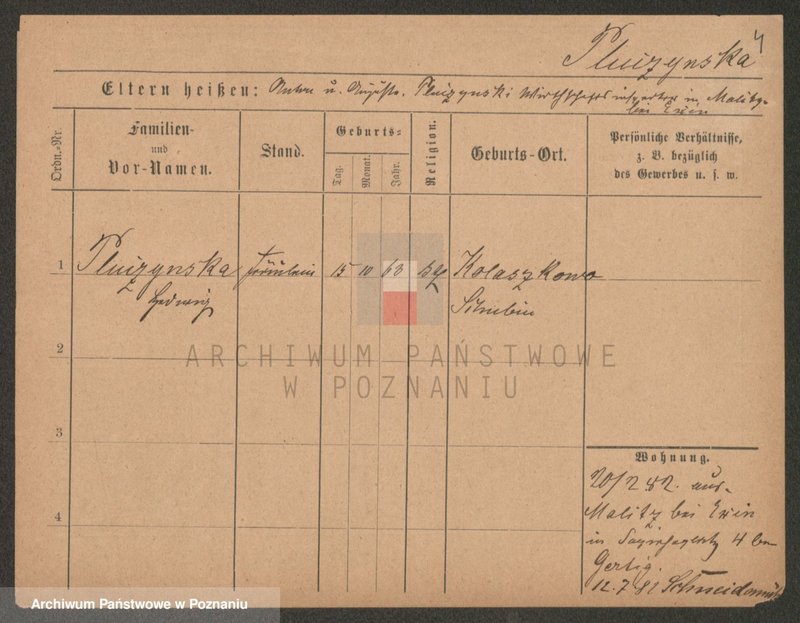 Pluczynska 4
Eltern heißen: Anton u. Auguste. Pluczynski Wirthschafts in Malitz
bei Exin
Ordn.-Nr.
Familien-
und
Vor-Namen.
Stand.
Geburts-
Tag.
Monat.
Jahr.
Religion.
Geburts-Ort.
Persönliche Verhältnisse,
z. B. bezüglich
des Gewerbes u. s. w.
1 Pluczynska Fräulein 15 10 63 Kolaszkowo
Hedwig Schubin
2
ARCHIWUM PAŃSTWOWE
W POZNANIU
3
Wohnung.
20/2 82. aus
Malitz bei Exin
4
in 4 bei
Gertig.
12.7 82 Schneidemühl
Archiwum Państwowe w Poznaniu